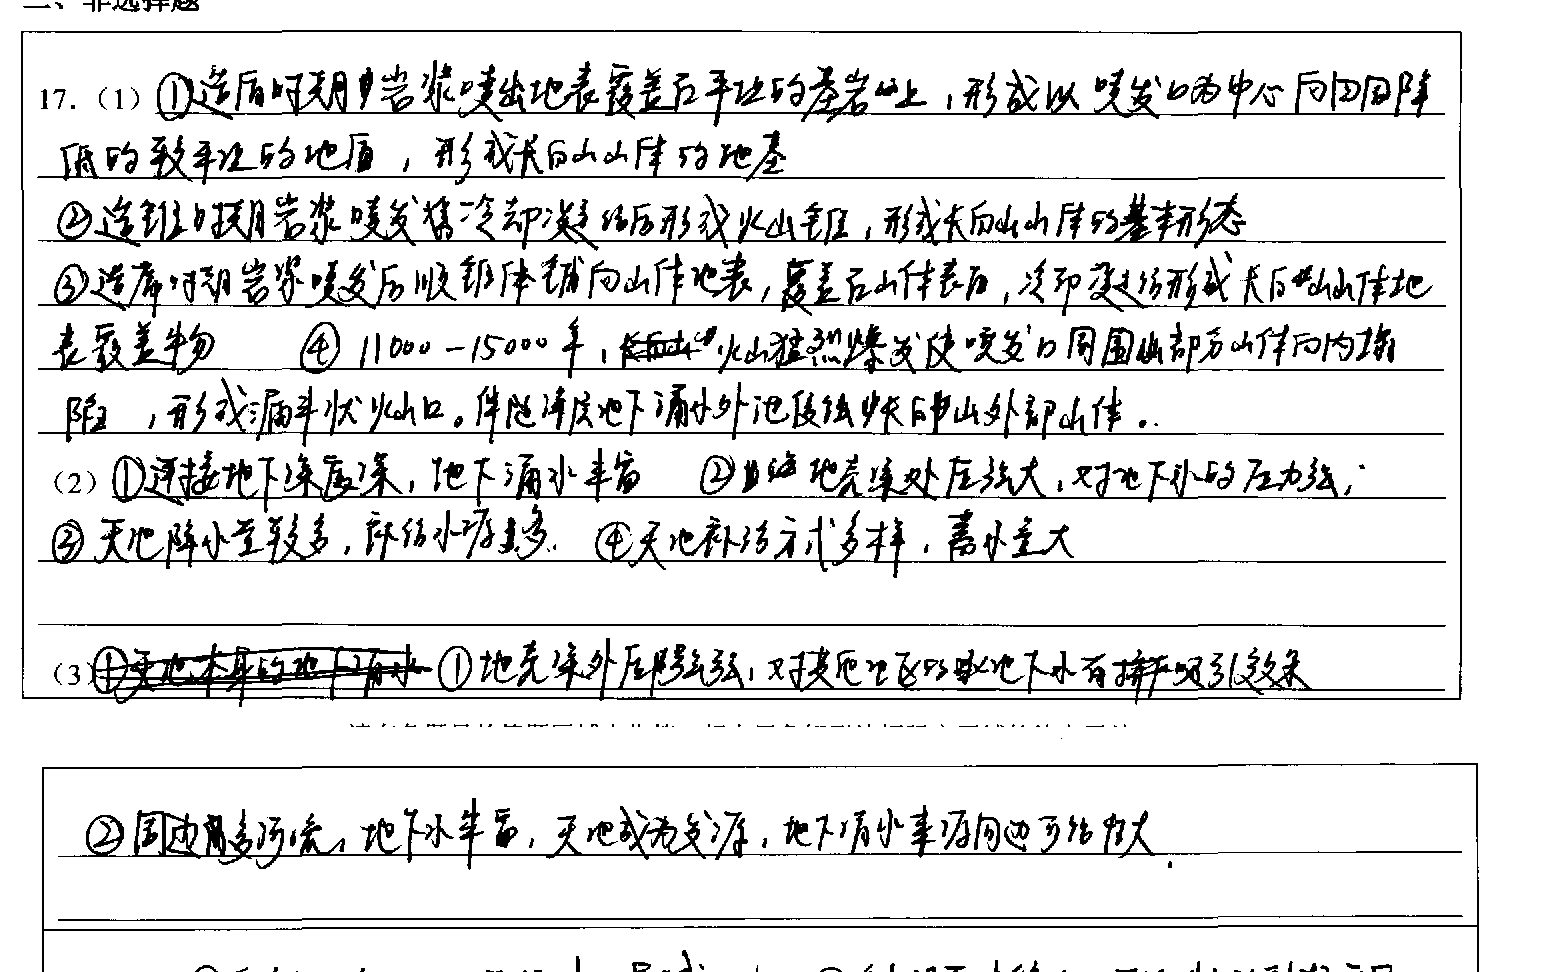 二、非选择题
17.（1）①造盾时期岩浆喷出地表覆盖在平坦的基岩上，形成以喷发口为中心向四周降
低的较平坦的地盾，形成长白山山体的地基
②造锥时期岩浆喷发冷却凝结后形成火山锥，形成长白山山体的基本形态
③造席时期岩浆喷发后顺锥体铺向山体地表，覆盖在山体表面，冷却凝结形成长白山山体地
表覆盖物 ④11000-15000年，火山猛烈爆发使喷发口周围部分山体向内塌
陷，形成漏斗状火山口。伴随深层地下涌水外池侵蚀长白山外部山体。
（2）①连接地下深度深，地下涌水丰富 ②地壳深处压强大，对地下水的压力强；
③天池降水量较多，补给水源多 ④天池补给方式多样，蓄水量大
（3）①地壳深处压强强，对其他地区的地下水有吸引效果
②周边多河流，地下水丰富，天池成为发源，地下涌水来源周边可给性大